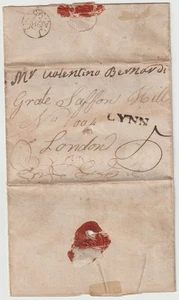 Mr Valentino Bernardi
Grate Saffon Hill
London
LYNN